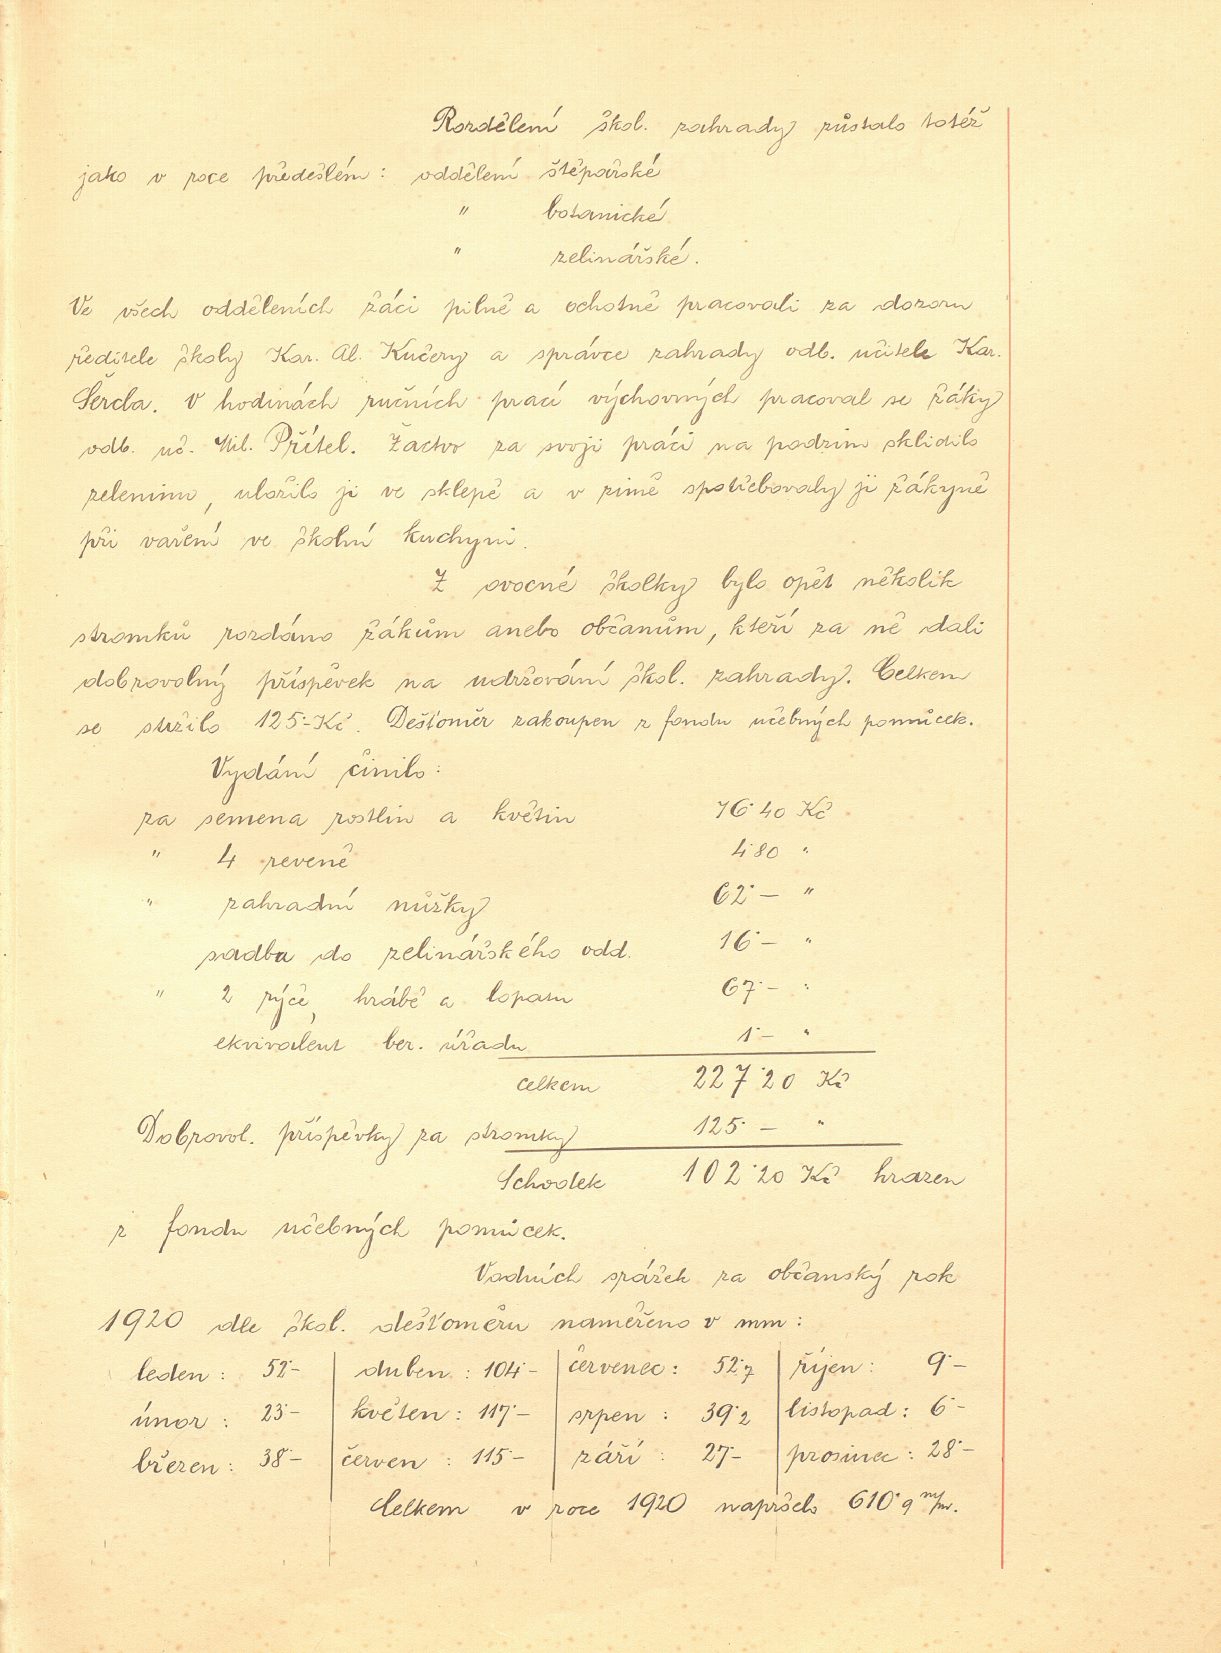 Rozdělení škol. zahrady zůstalo totéž
jako v roce předešlém: oddělení štěpařské
" botanické
" zelinářské.
Ve všech odděleních žáci pilně a ochotně pracovali za dozoru
ředitele školy Kar. Al. Kučery a správce zahrady odb. učitele Kar.
Šercla. V hodinách ručních prací výchovných pracoval se žáky
odb. uč. Mil. Přítel. Žactvo za svoji práci na podzim sklidilo
zeleninu, uložilo ji ve sklepě a v zimě spotřebovaly ji žákyně
při vaření ve školní kuchyni.
Z ovocné školky bylo opět několik
stromků rozdáno žákům anebo občanům, kteří za ně dali
dobrovolný příspěvek na udržování škol. zahrady. Celkem
se stržilo 125·– Kč. Dešťoměr zakoupen z fondu učebných pomůcek.
Vydání činilo:
za semena rostlin a květin 76·40 Kč
" 4 reveně 4·80 "
" zahradní nůžky 62·– "
sadba do zelinářského odd. 16·– "
" 2 rýče, hrábě a lopatu 67·– "
ekvivalent ber. úřadu 1·– "
celkem 227·20 Kč
Dobrovol. příspěvky za stromky 125·– "
Schodek 102·20 Kč hrazen
z fondu učebných pomůcek.
Vodních srážek za občanský rok
1920 dle škol. dešťoměru naměřeno v mm:
leden: 52·– duben: 104·– červenec: 52·7 říjen: 9·–
únor: 23·– květen: 117·– srpen: 39·2 listopad: 6·–
březen: 38·– červen: 115·– září: 27·– prosinec: 28·–
Celkem v roce 1920 napršelo 610·9 m/m.